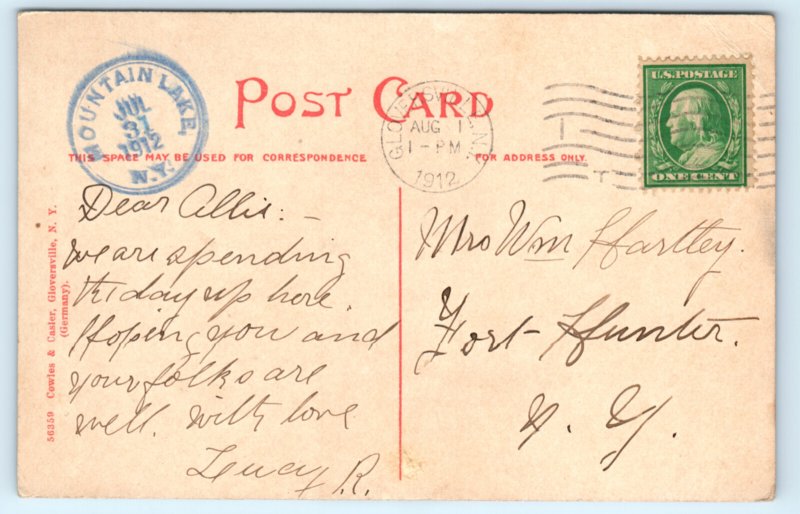 MOUNTAIN LAKE,
JUL
31
1912
N.Y.
POST CARD
GLOVERSVILLE, N.Y.
AUG 1
1-PM
1912
U.S. POSTAGE
ONE CENT
THIS SPACE MAY BE USED FOR CORRESPONDENCE
FOR ADDRESS ONLY.
Dear Allie: —
we are spending
the day up here.
Hoping you and
your folks are
well. With love
Lucy R.
Mrs Wm Hartley.
Fort Hunter.
N. Y.
56359 Cowles & Casler, Gloversville, N. Y.
(Germany).